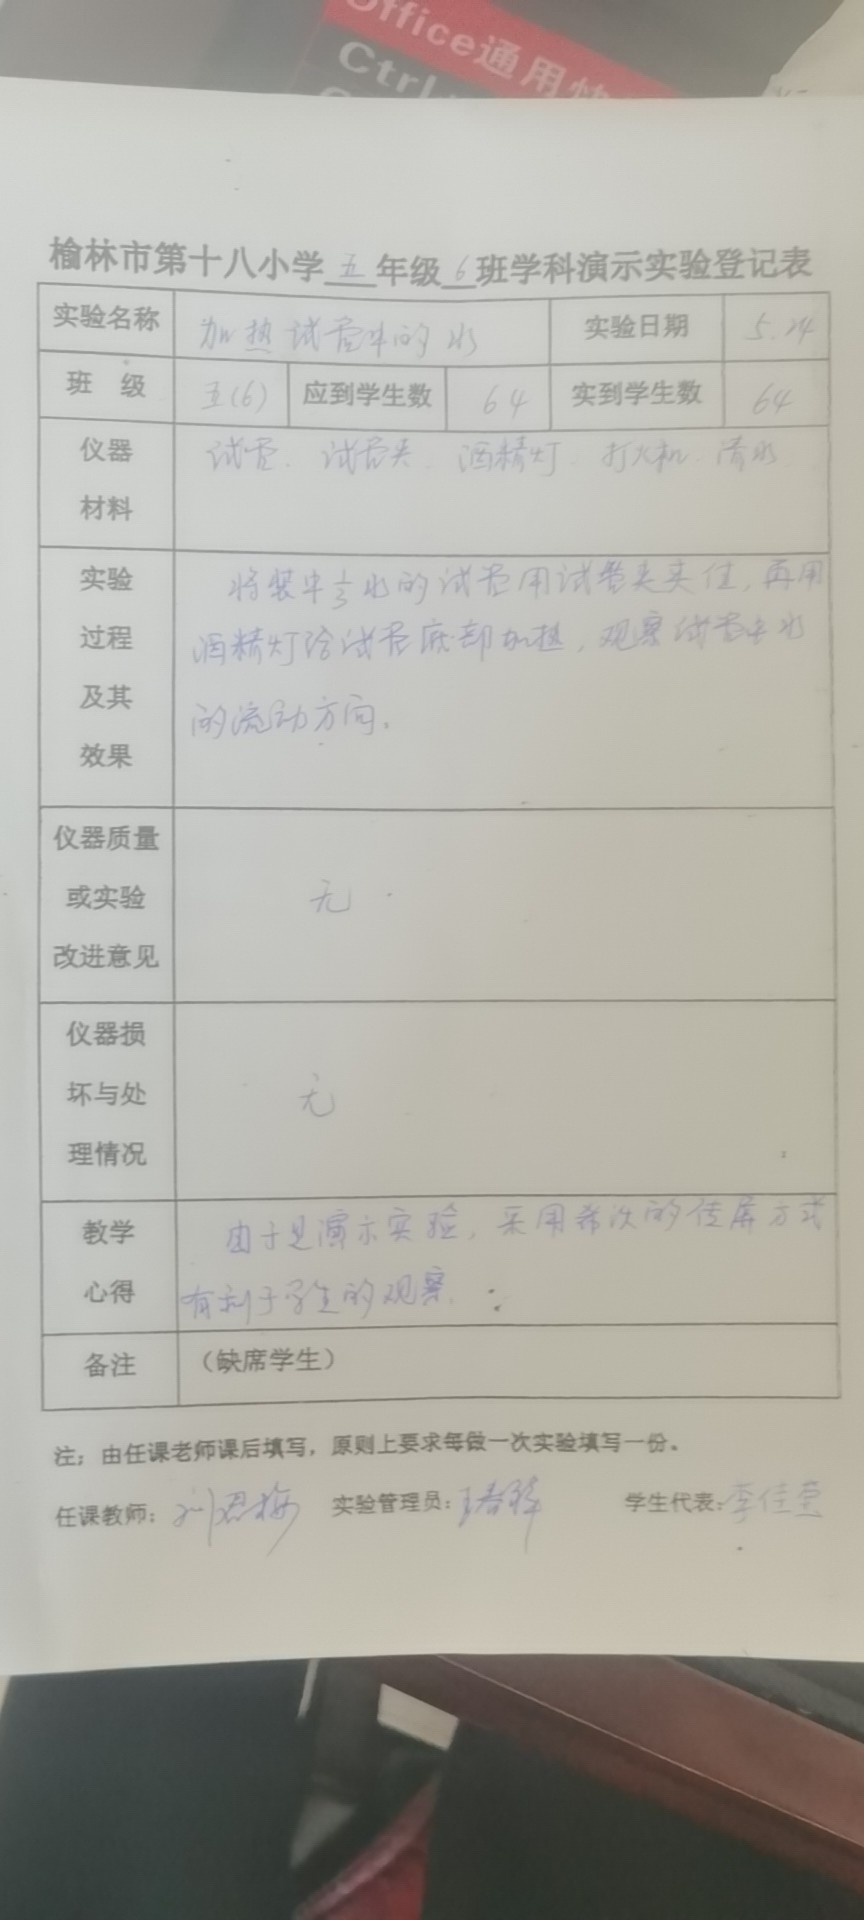 Office通用快
Ctrl
榆林市第十八小学五年级6班学科演示实验登记表
实验名称 加热试管中的水 实验日期 5.24
班 级 五(6) 应到学生数 64 实到学生数 64
仪器 试管、试管夹、酒精灯、打火机、清水
材料
实验 将装中1/3水的试管用试管夹夹住,再用
过程 酒精灯给试管底部加热,观察试管中水
及其 的流动方向。
效果
仪器质量
或实验 无
改进意见
仪器损
坏与处 无
理情况
教学 由于是演示实验,采用希沃的传屏方式
心得 有利于学生的观察.
备注 (缺席学生)
注:由任课老师课后填写,原则上要求每做一次实验填写一份。
任课教师: 实验管理员: 学生代表:李佳萱